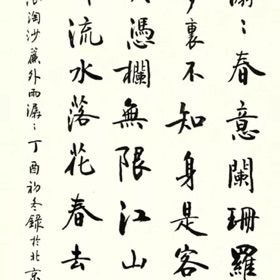 潺〻春意闌珊羅
夢裏不知身是客
憑欄無限江山
流水落花春去
浪淘沙簾外雨潺〻丁酉初冬錄於北京